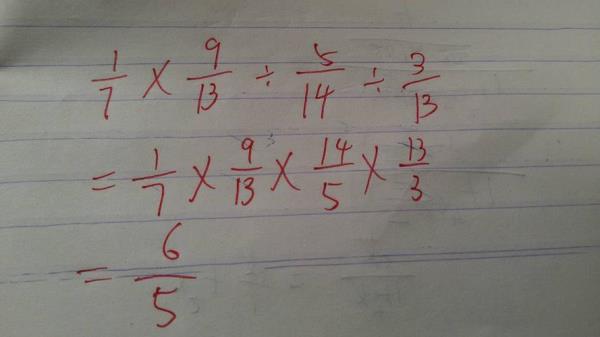 1/7 × 9/13 ÷ 5/14 ÷ 3/13
= 1/7 × 9/13 × 14/5 × 13/3
= 6/5